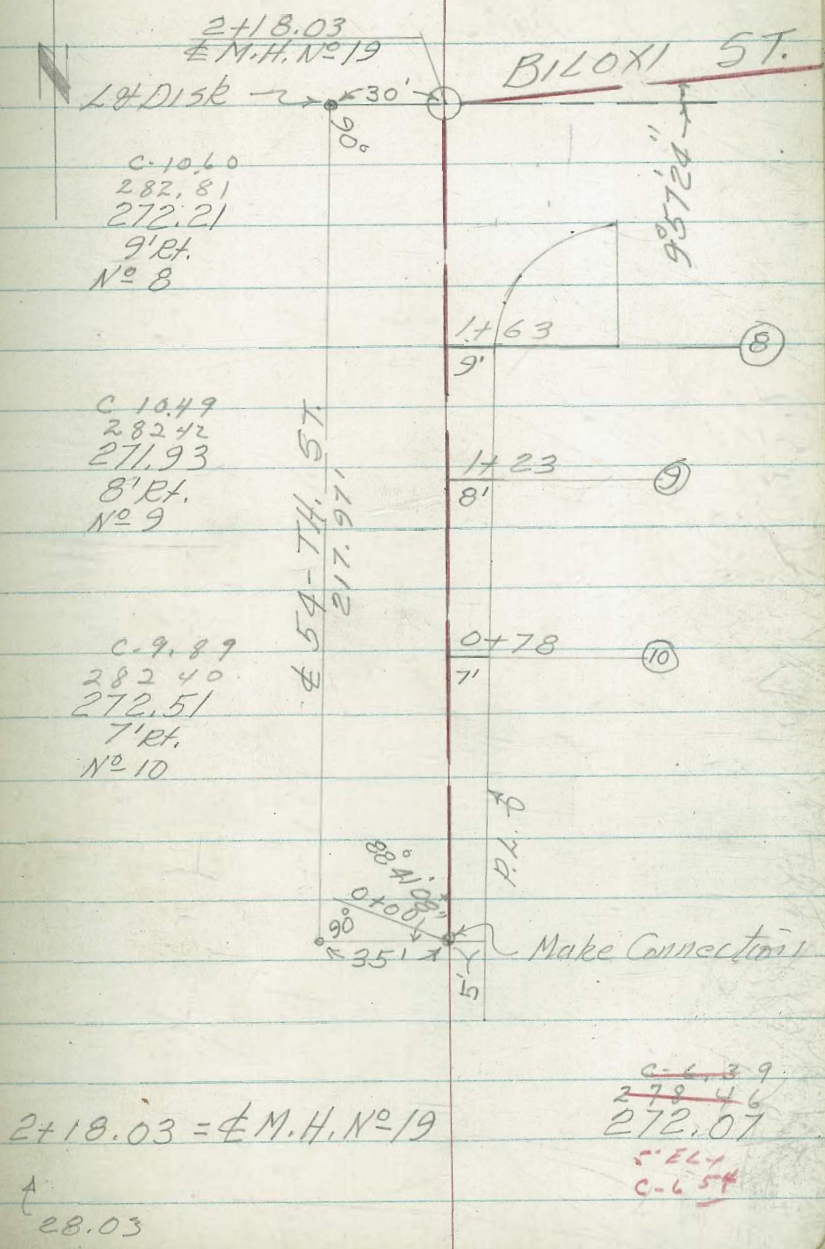 2+18.03
⅊ M.H. Nº 19
N
BILOXI ST.
L&Disk
30'
90°
C-10.60
282.81
272.21
9' Rt.
Nº 8
1+63
9'
8
C 10.49
282 42
271.93
8' Rt.
Nº 9
1+23
8'
9
⅊ 54-TH. ST.
217.97'
C-9.89
282 40
272.51
7' Rt.
Nº 10
0+78
7'
10
P.L.
88° 41' 08"
0+00
90°
35'
5'
Make Connection
C-6.39
278 46
272.07
5' ELY
C-6 54
2+18.03 = ⅊ M.H. Nº 19
28.03